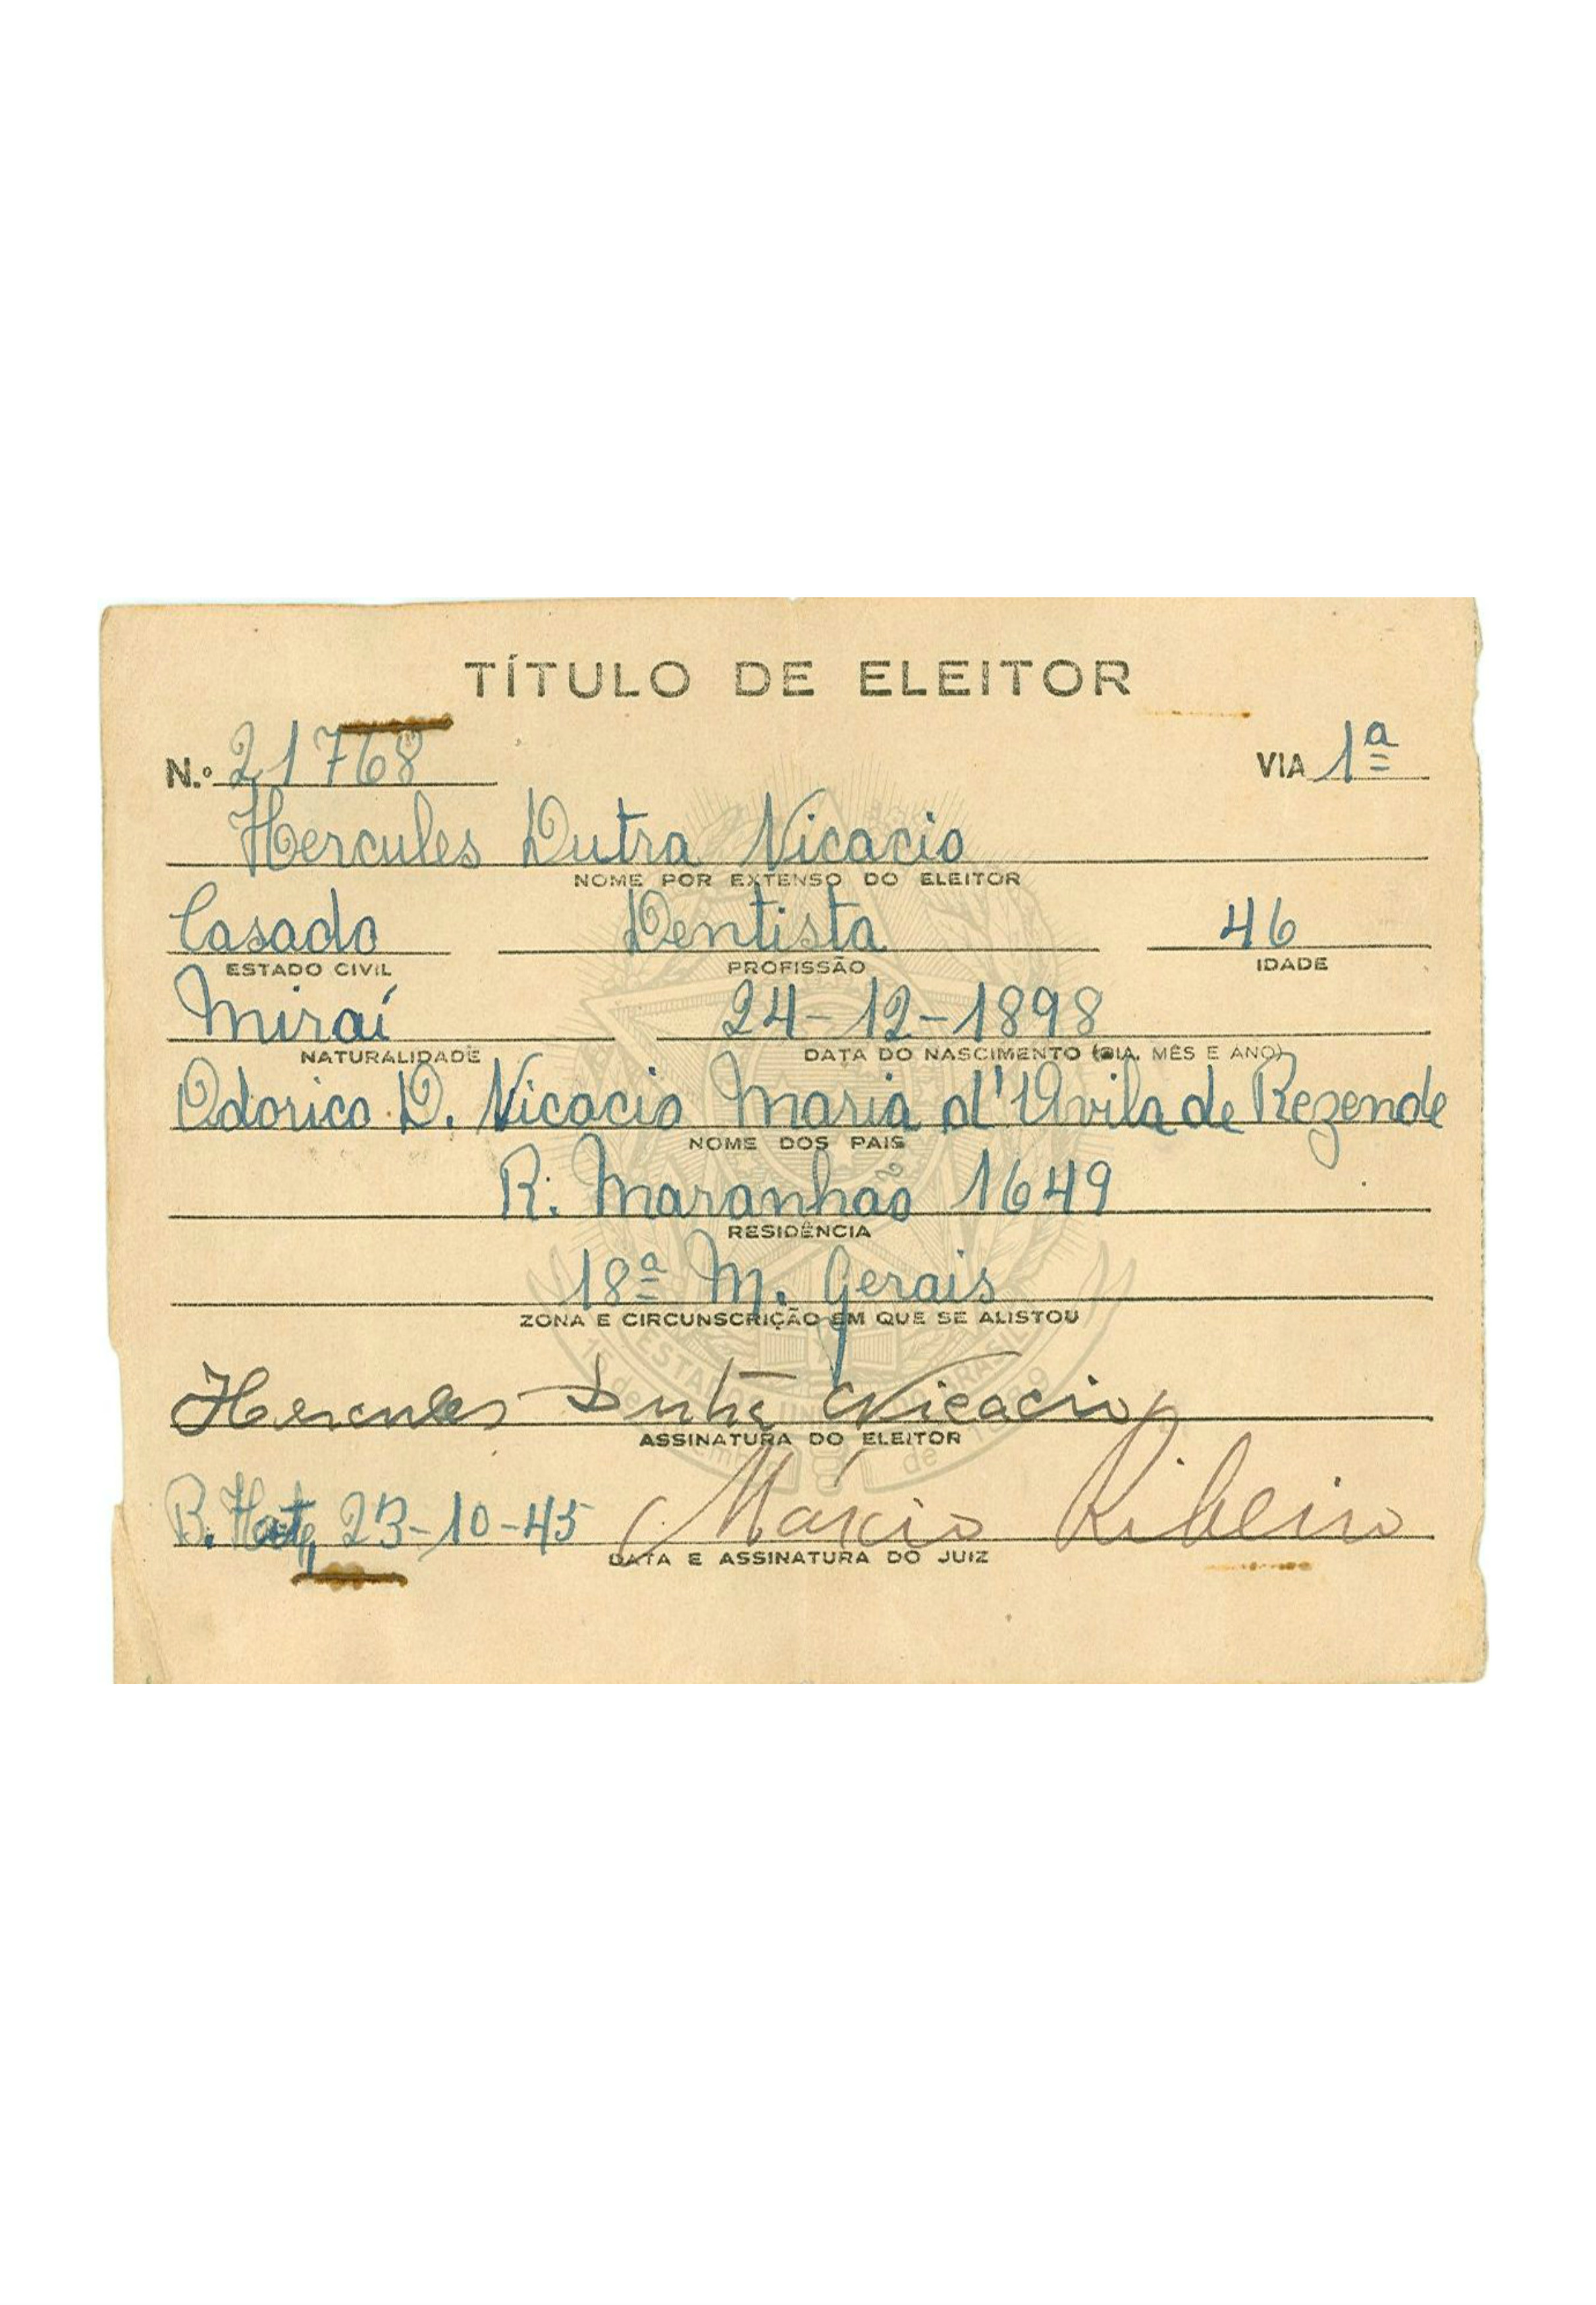 TÍTULO DE ELEITOR
N.º 21768 VIA 1ª
Hercules Dutra Nicacio
NOME POR EXTENSO DO ELEITOR
Casado Dentista 46
ESTADO CIVIL PROFISSÃO IDADE
Miraí 24-12-1898
NATURALIDADE DATA DO NASCIMENTO (DIA, MÊS E ANO)
Odorico D. Nicacio Maria d'Avila de Rezende
NOME DOS PAIS
R. Maranhão 1649
RESIDÊNCIA
18ª M. Gerais
ZONA E CIRCUNSCRIÇÃO EM QUE SE ALISTOU
Hercules Dutra Nicacio
ASSINATURA DO ELEITOR
B. Hte, 23-10-45 Márcio Ribeiro
DATA E ASSINATURA DO JUIZ